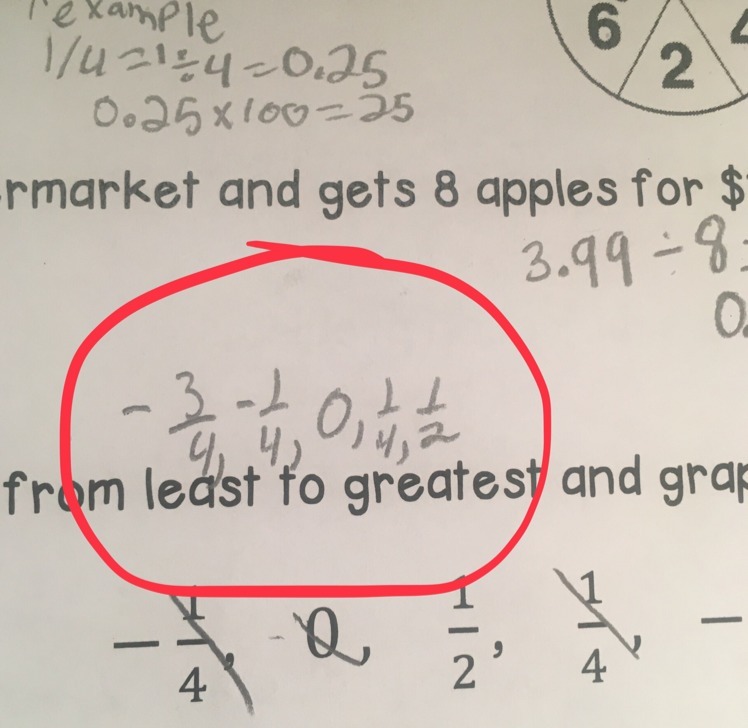 example
1/4=1÷4=0.25
6
2
0.25x100=25
rmarket and gets 8 apples for $
3.99÷8
0.
-3/4, -1/4, 0, 1/4, 1/2
from least to greatest and grap
-1/4, 0, 1/2, 1/4, -